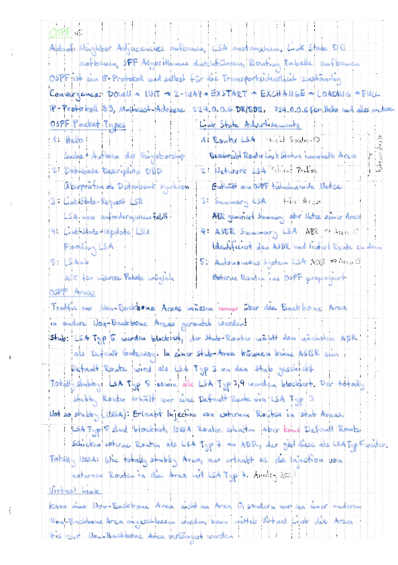 OSPF
Ablauf: Neighbor Adjacencies aufbauen, LSA austauschen, Link State DB
aufbauen, SPF Algorithmus durchführen, Routing Tabelle aufbauen
OSPF ist ein IP-Protokoll und selbst für die Transportsicherheit zuständig
Convergence: DOWN → INIT → 2-WAY → EXSTART → EXCHANGE → LOADING → FULL
IP-Protokoll 89, Multicast-Adresse 224.0.0.6 DR/BDR, 224.0.0.5 für Hello und alles andere
OSPF Packet Types
Link State Advertisements
1: Hello
1: Router LSA
Suche + Aufbau der Neighborship
Beschreibt Router Link Status innerhalb Area
2: Database Description DBD
2: Network LSA
Überprüfen ob Datenbank synchron
Enthält am OSPF teilnehmende Netze
3: Link-State-Request LSR
3: Summary LSA
LSA, neu anfordern, wenn fehlt
ABR generiert Summary aller Netze einer Area
4: Link-State-Update LSU
4: ASBR Summary LSA
Flooding LSA
Identifiziert den ASBR und liefert Route zu dem
5: LSAck
5: Autonomous System LSA
ACK für mehrere Pakete möglich
Externe Routen ins OSPF propagiert
OSPF Areas
Traffic aus Non-Backbone Areas müssen immer über die Backbone Area
in andere Non-Backbone Areas geroutet werden!
Stub: LSA Typ 5 werden blockiert, der Stub-Router wählt den nächsten ABR
als Default Gateway. In einer Stub-Area können keine ASBR sein
Default Route wird als LSA Typ 3 an den Stub geschickt
Totally stubby: LSA Typ 5 sowie alle LSA Typ 3,4 werden blockiert. Der totally
stubby Router erhält nur eine Default Route via LSA Typ 3
Not so stubby (NSSA): Erlaubt Injection von externen Routen in stub Areas.
LSA Typ 5 sind blockiert, NSSA Router erhalten aber keine Default Route
Schicken externe Routen als LSA Typ 7 an ABR, der gibt diese als LSA Typ 5 weiter.
Totally NSSA: Wie totally stubby Area, nur erlaubt es die Injection von
externen Routen in die Area mit LSA Typ 7.
Virtual Link
Kann eine Non-Backbone Area nicht an Area 0, sondern nur an einer anderen
Non-Backbone Area angeschlossen werden, kann mittels Virtual Link die Area
bis zur Non-Backbone Area verlängert werden